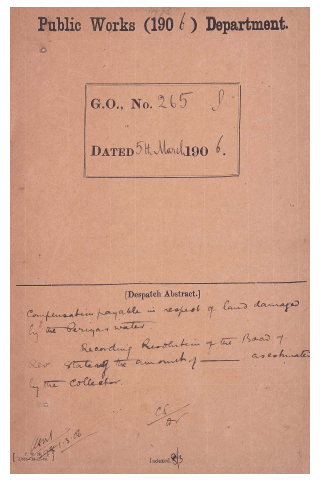 Public Works (1906) Department.
G.O., No. 265
DATED 5th March 1906.
[Despatch Abstract.]
Compensation payable in respect of land damaged
by the Periyar water.
Recording Resolution of the Board of
Rev. stating the amount of —— as estimated
by the Collector.
Indexed